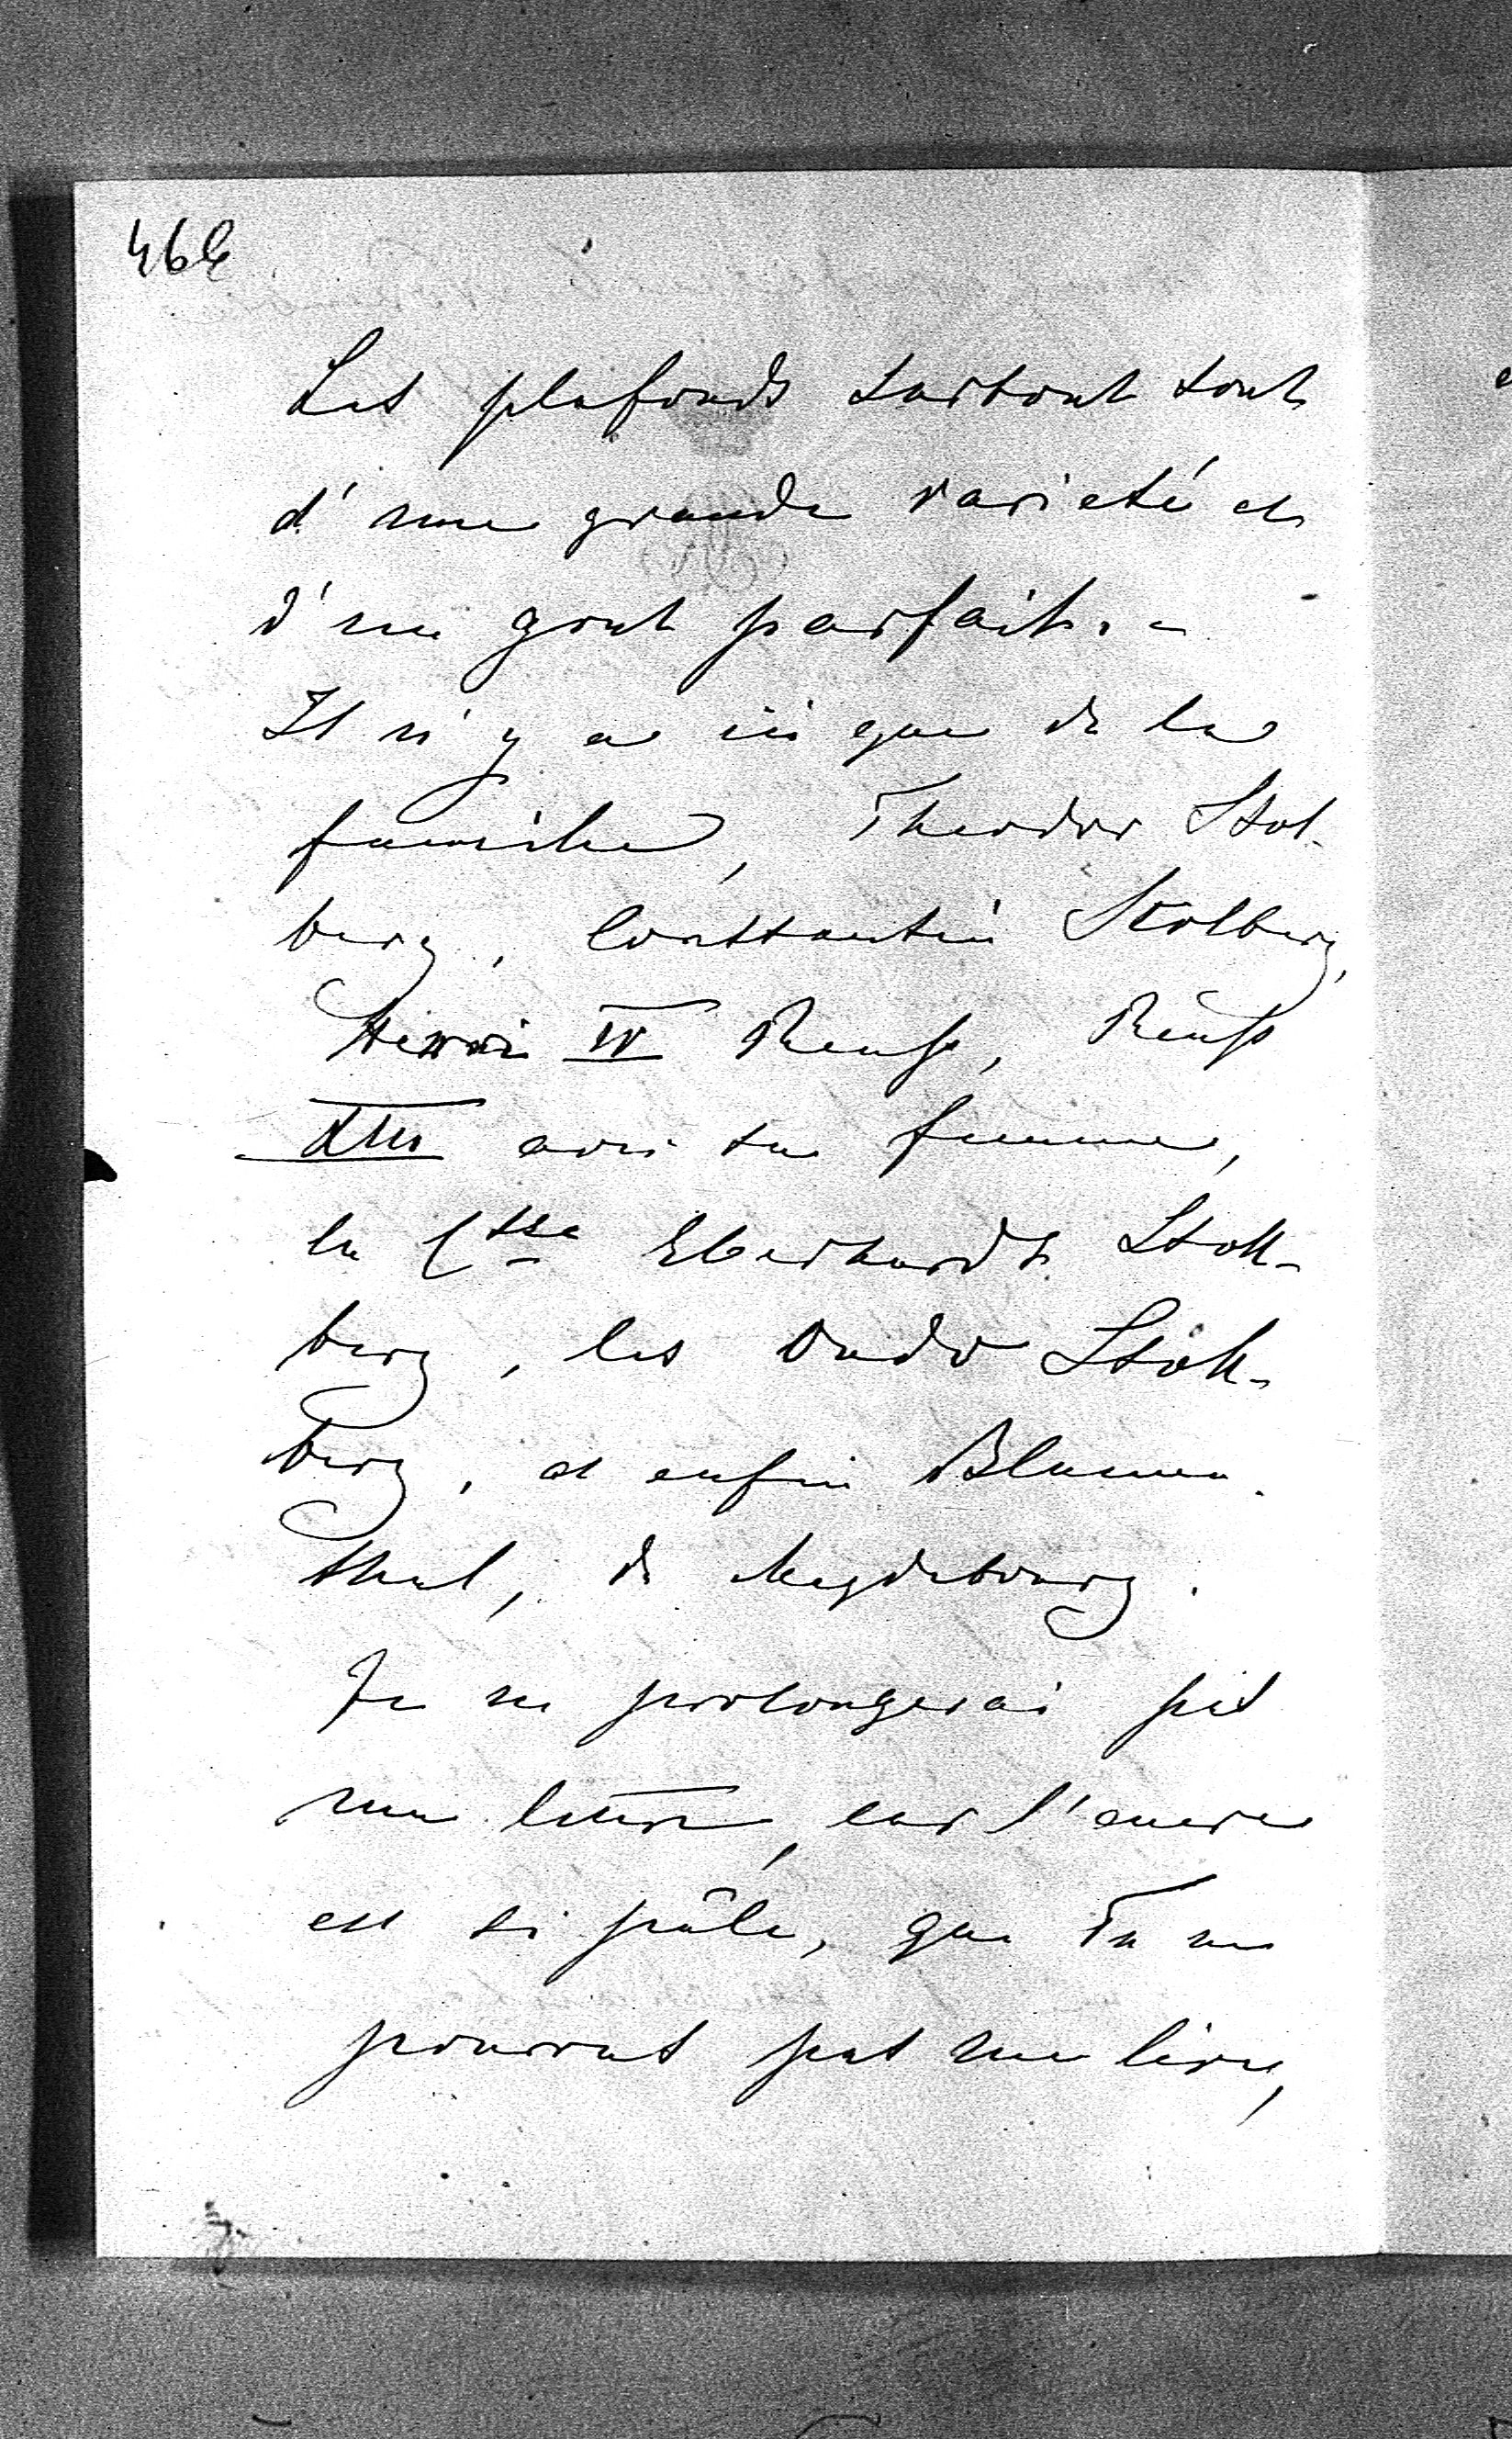 466
Les plafonds surtout sont
d'une grande varieté et
d'un gout parfait. -
Il n'y a ici que de la
famille, Theodor Stol-
berg, Constantin Stolberg,
Henri IV Reuss, Reuss
XIII avec sa femme,
la Ctsse Eberhardt Stoll-
berg, les Stoll-
berg, et enfin Blumen-
thal, de Magdebourg.
Je ne prolongerai pas
ma lettre, car l'encre
est si pâle, que Tu ne
pourras pas me lire,